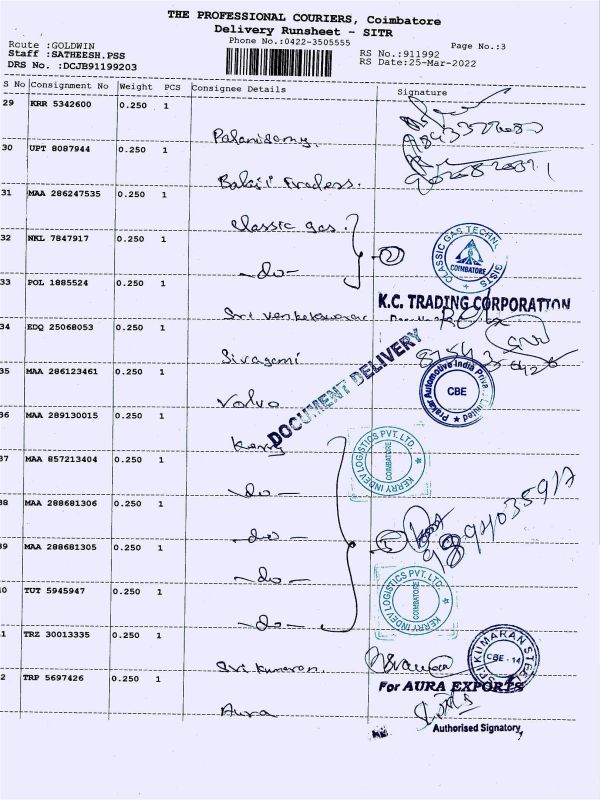 THE PROFESSIONAL COURIERS, Coimbatore
Delivery Runsheet - SITR
Phone No.:0422-3505555
Page No.:3
Route :GOLDWIN
Staff :SATHEESH.PSS
DRS No. :DCJB91199203
RS No.:911992
RS Date:25-Mar-2022
S No Consignment No Weight PCS Consignee Details Signature
29 KRR 5342600 0.250 1
Palanisamy.
30 UPT 8087944 0.250 1
Balaji Traders.
31 MAA 286247535 0.250 1
Classic gas.
32 NKL 7847917 0.250 1
CLASSIC GAS TECHNOLOGISTS
COIMBATORE
-do-
2
33 POL 1885524 0.250 1
K.C. TRADING CORPORATION
Sri Venkateswarar
34 EDQ 25068053 0.250 1
Sivagami
DOCUMENT DELIVERY
35 MAA 286123461 0.250 1
Prakar Automotive India Private Limited
CBE
Volvo
36 MAA 289130015 0.250 1
Kerry
KERRY INDEV LOGISTICS PVT. LTD.
COIMBATORE
37 MAA 857213404 0.250 1
-do-
38 MAA 288681306 0.250 1
-do-
5
39 MAA 288681305 0.250 1
-do-
9894035917
40 TUT 5945947 0.250 1
KERRY INDEV LOGISTICS PVT. LTD.
COIMBATORE
-do-
1 TRZ 30013335 0.250 1
Sri Kumaran.
SRI KUMARAN STEEL
CBE - 14
2 TRP 5697426 0.250 1
For AURA EXPORTS
Aura
Authorised Signatory